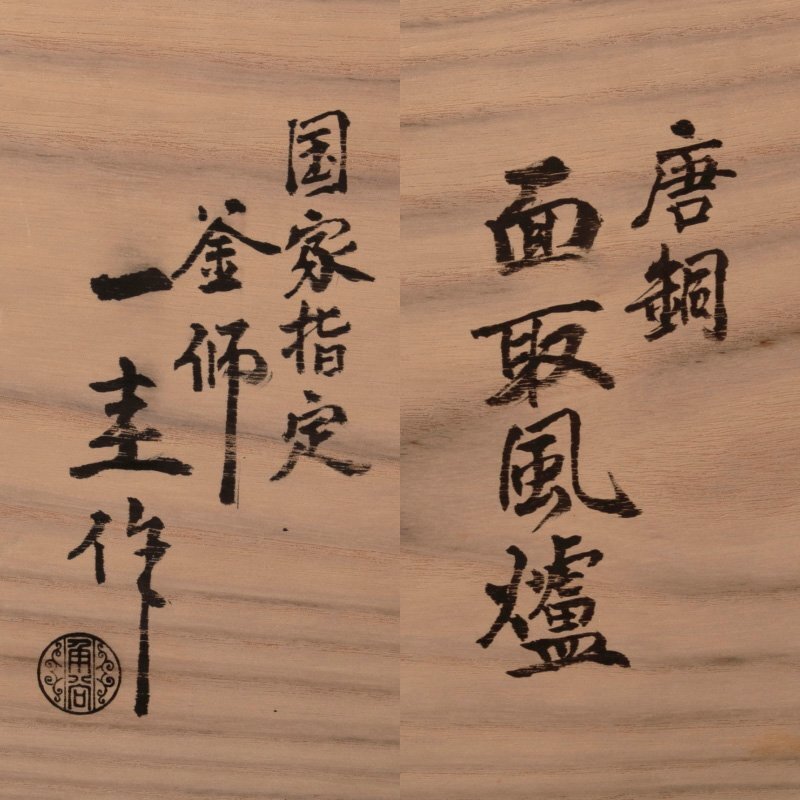 唐銅
面取風爐
国家指定
釜師
一圭作
角谷